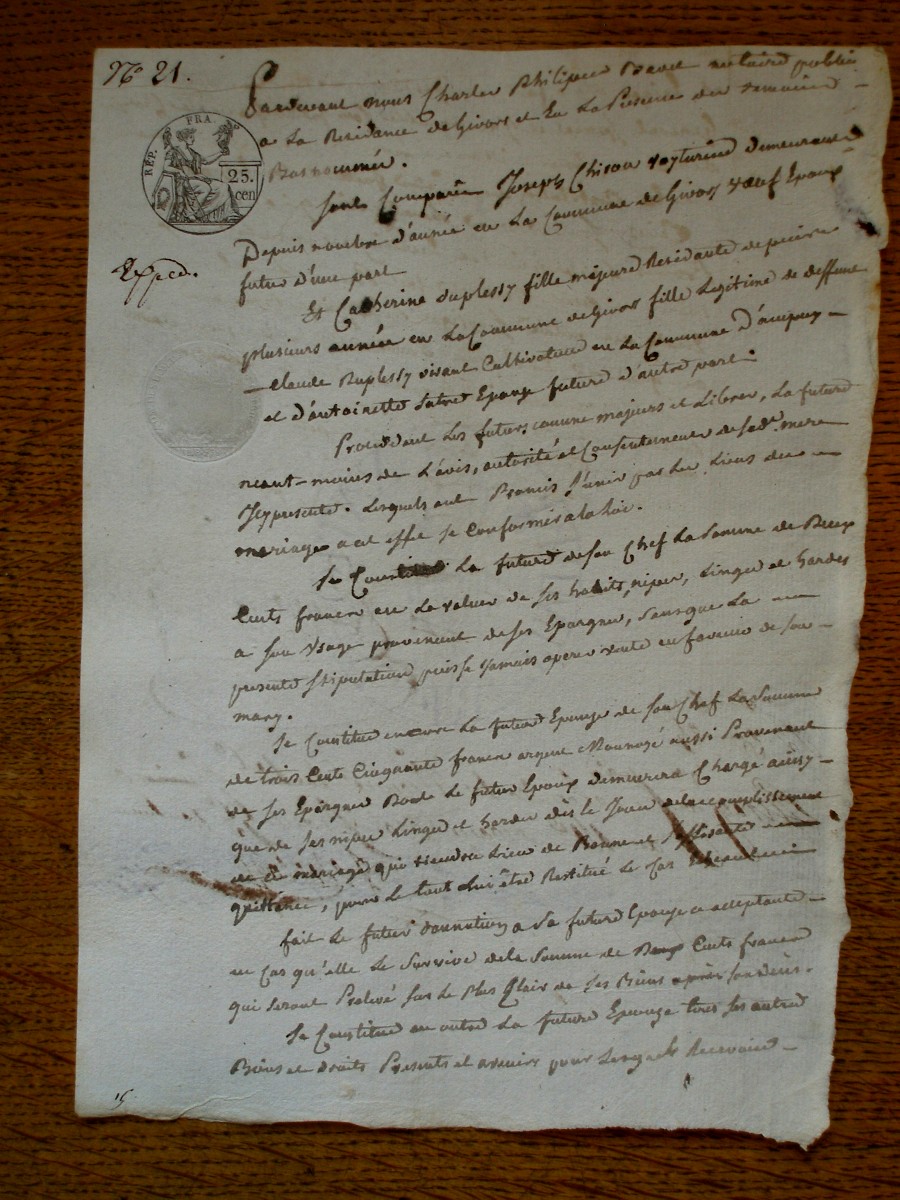 N.o 21.
Pardevant nous Charles Philippe notaire public
RÉP. FRA
25. cen
a La Residance de Givors et En La Presence des temoins
Bas nommés.
sont Comparûs Joseph voyturier demeurant
Depuis nombre d'année en La Commune de Givors veuf Epoux
futur d'une part
Expéd.
Et Catherine duplessy fille majeure Residante depuis
plusieurs année en La Commune de Givors fille Legitime de deffunt
Claude Duplessy vivant Cultivateur en La Commune D'ampuy
et d'antoinette Epouze future d'autre part.
Procedant Les futurs comme majeurs et Libres, La future
neant-moins de L'avis, autorité et Consentement de sad.e mere
Icy presente. Lesquels ont Promis S'unir par Les Liens du
mariage a cet effet se Conformés a la loi.
Se La future de son Chef La Somme de Deux
Cents francs en La valeur de ses habits, nipes, Linges et hardes
a son Usage provenant de ses Epargnes, sans que La
presente stipulation puisse Jamais operer vente en faveur de son
mary.
Se Constitue encore La future Epouze de son Chef La Somme
de trois Cents Cinquante francs argent Monnoyé aussi Provenant
de ses Epargnes Dont Le futur Epoux demeurera Chargé ainsy
que de ses nipes Linges et hardes dès le Jour de l'accomplissement
de ce mariage qui tiendra Lieu de Bonne et suffisante
quittance, pour Le tout Lui être Restitué Le Cas Echeant
fait Le futur donnation a Sa future Epouze ce acceptante
en Cas qu'elle Le Survive de la Somme de Deux Cents francs
qui seront Prelevé sur Le Plus Clair de ses Biens après son deces.
Se Constitue en outre La future Epouze tous ses autres
Biens et droits Presents et avenirs pour Recevoir